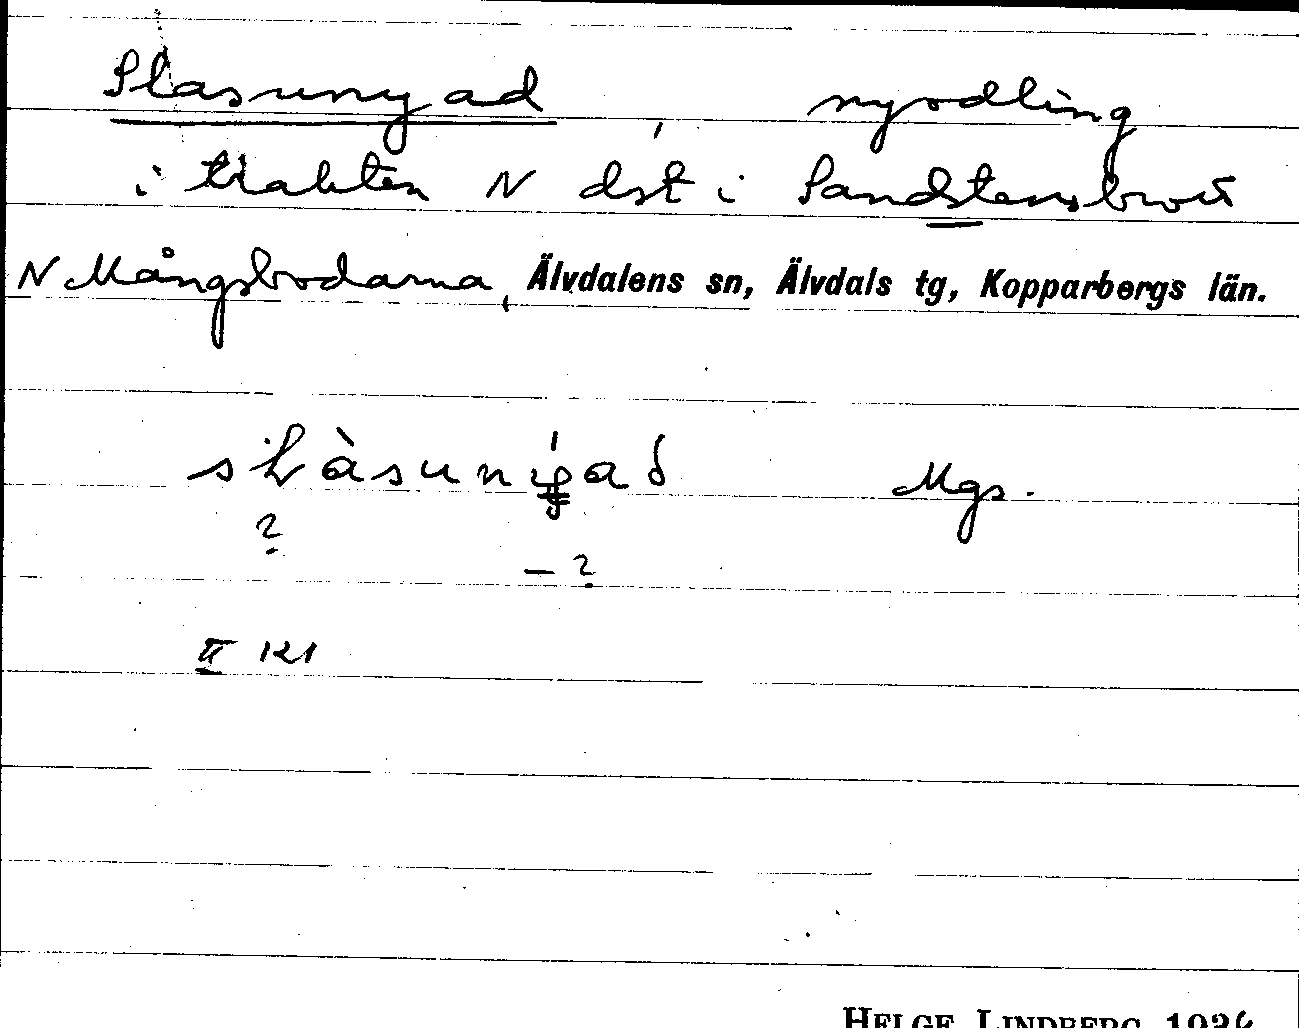 Slasunyad, nyodling
i trakten N dst i Sandstensbrott
N Mångsbodarna, Älvdalens sn, Älvdals tg, Kopparbergs län.
Mgs.
?
– ?
II 121
HELGE LINDBERG 1934